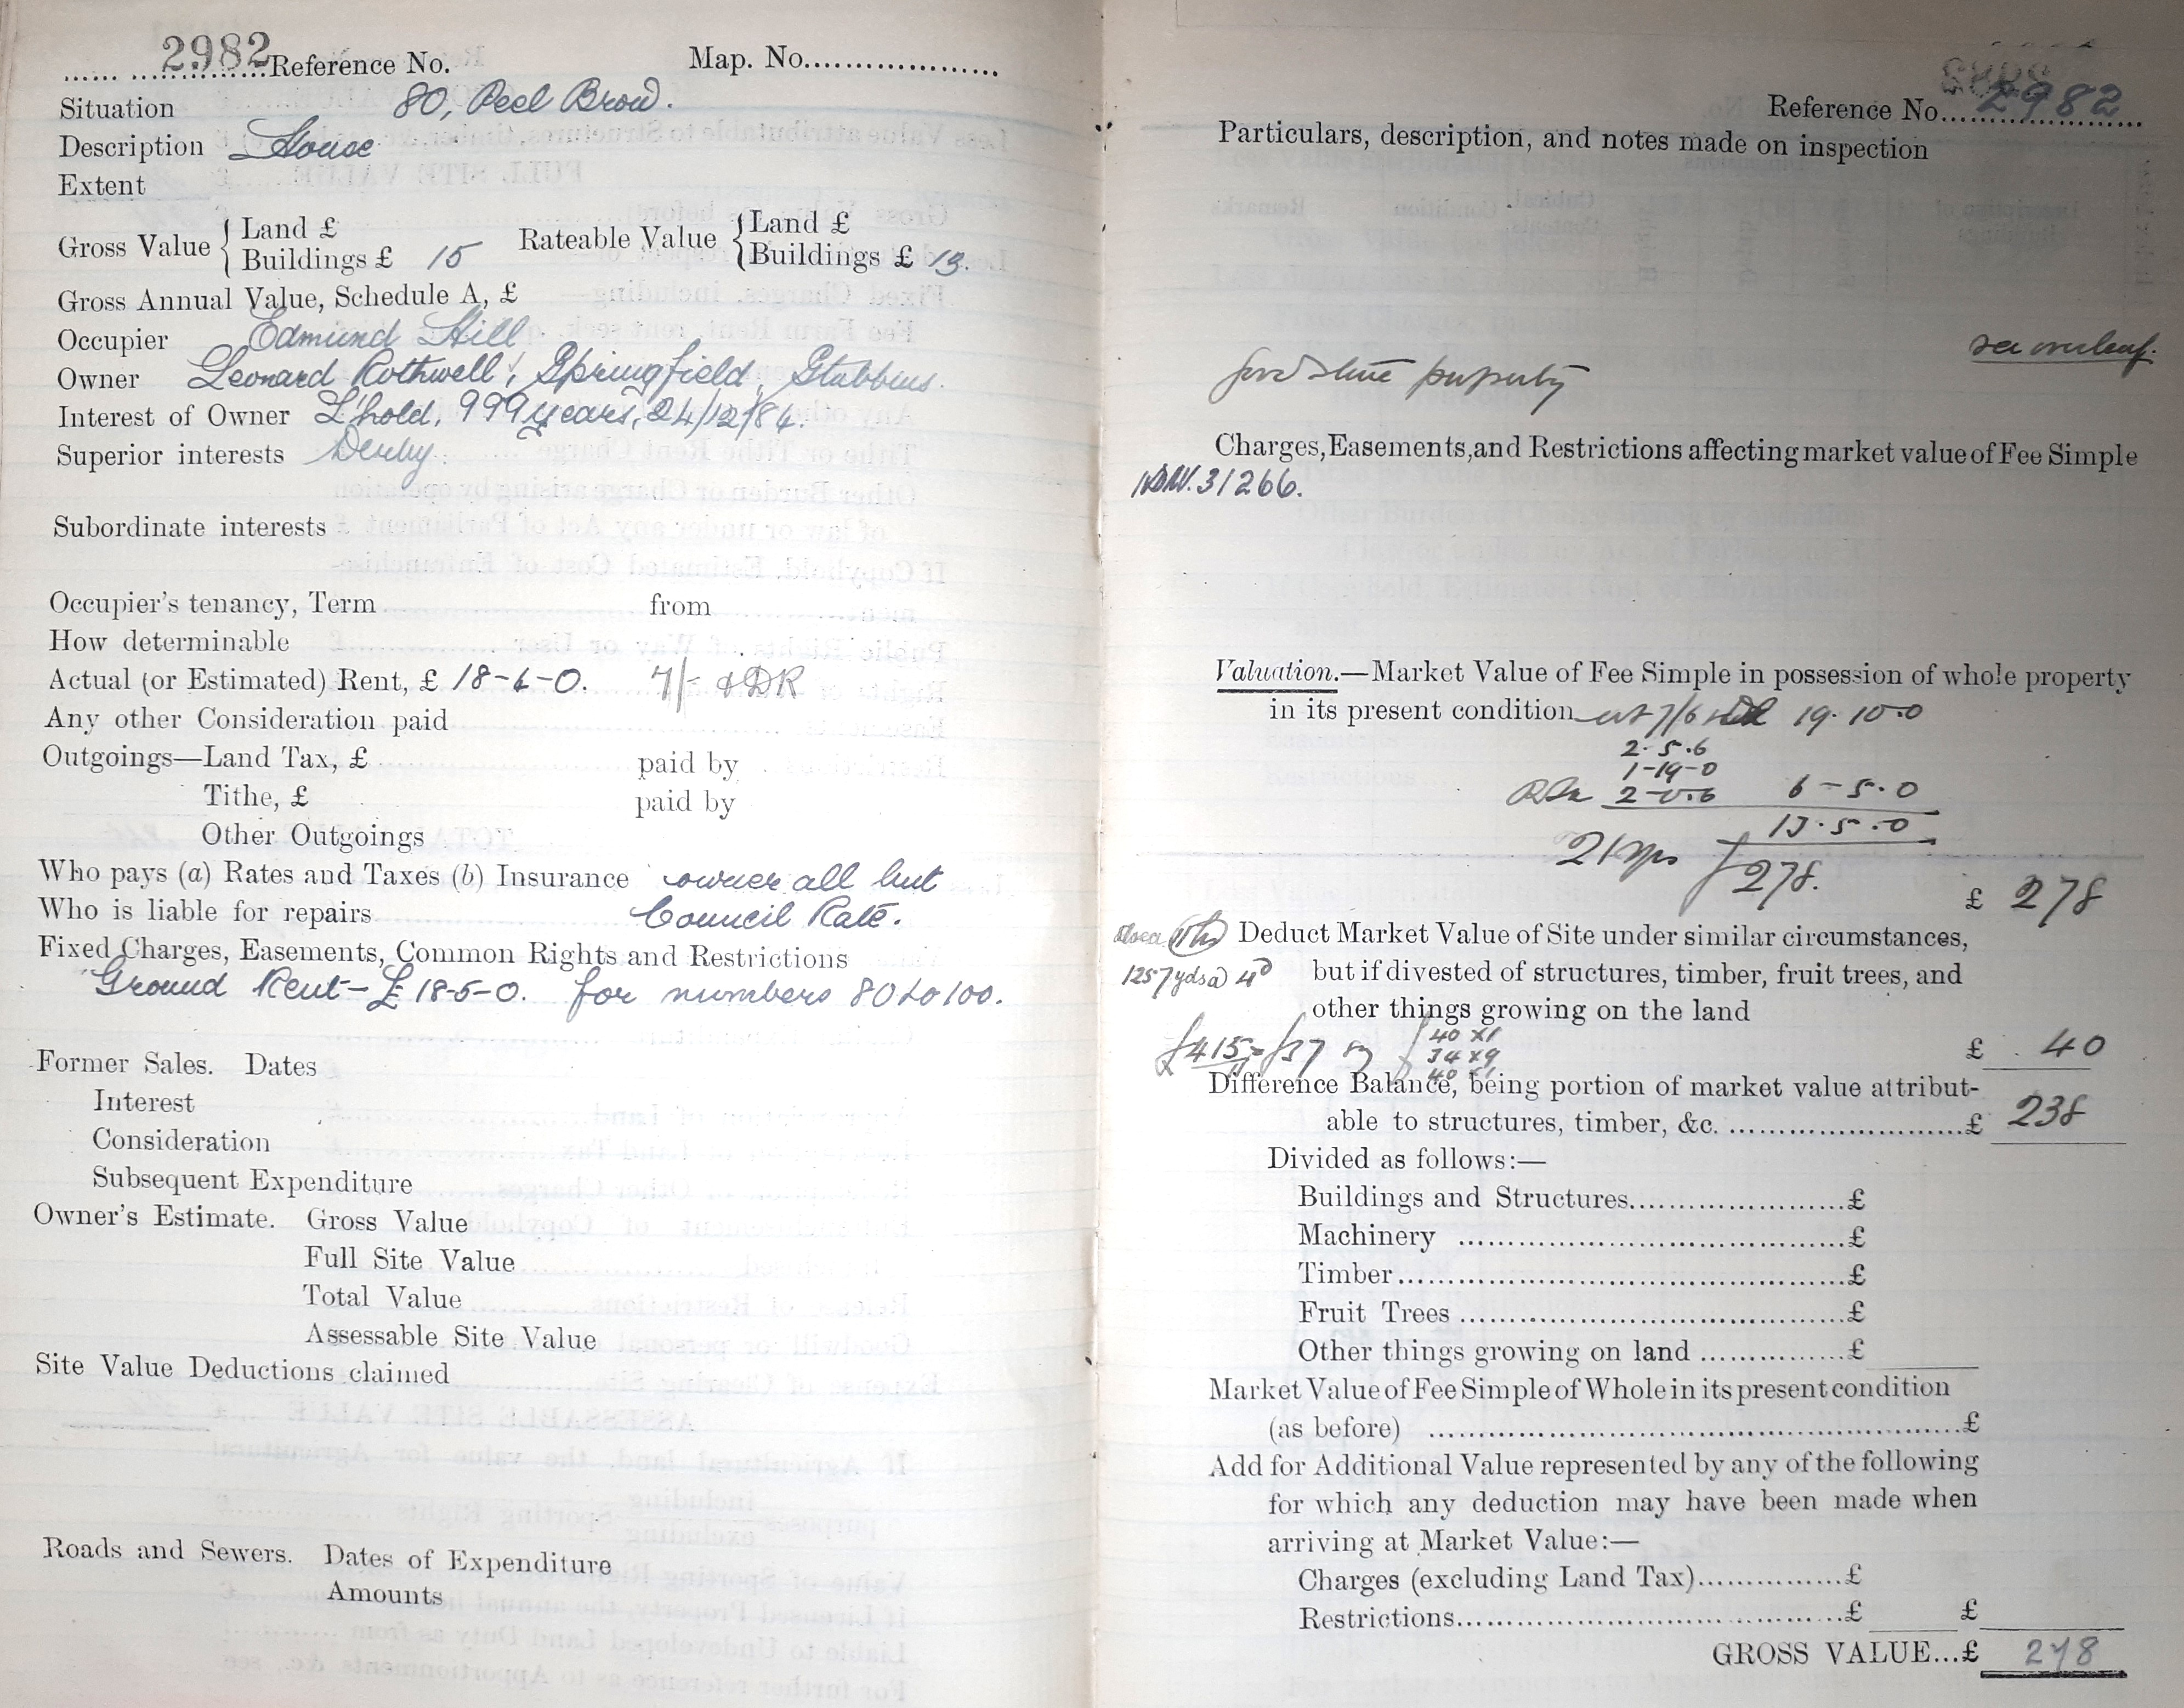 2982 Reference No. Map. No.
Situation 80, Peel Brow.
Description House
Extent
Gross Value { Land £ Rateable Value { Land £
Buildings £ 15 Buildings £ 13.
Gross Annual Value, Schedule A, £
Occupier Edmund Hill
Owner Leonard Rothwell, Springfield, Stubbins.
Interest of Owner L'hold, 999 years, 24/12/84.
Superior interests Derby.
Subordinate interests
Occupier's tenancy, Term from
How determinable
Actual (or Estimated) Rent, £ 18-4-0. 7/- & DR
Any other Consideration paid
Outgoings—Land Tax, £ paid by
Tithe, £ paid by
Other Outgoings
Who pays (a) Rates and Taxes (b) Insurance owner all but
Who is liable for repairs Council Rate.
Fixed Charges, Easements, Common Rights and Restrictions
Ground Rent - £ 18-5-0. for numbers 80 to 100.
Former Sales. Dates
Interest
Consideration
Subsequent Expenditure
Owner's Estimate. Gross Value
Full Site Value
Total Value
Assessable Site Value
Site Value Deductions claimed
Roads and Sewers. Dates of Expenditure
Amounts
Reference No. 2982
Particulars, description, and notes made on inspection
see overleaf.
good stone property
Charges, Easements, and Restrictions affecting market value of Fee Simple
31266.
Valuation.—Market Value of Fee Simple in possession of whole property
in its present condition at 7/6 19.10.0
2.5.6
1-19-0
2-0.6 6-5.0
13.5.0
21 yps £278.
£ 278
Deduct Market Value of Site under similar circumstances,
1257 yds @ 4d but if divested of structures, timber, fruit trees, and
other things growing on the land
£415 = £37 40 x 1
11 34 x 9 £ 40
40 x 1
Difference Balance, being portion of market value attribut-
able to structures, timber, &c. £ 238
Divided as follows:—
Buildings and Structures £
Machinery £
Timber £
Fruit Trees £
Other things growing on land £
Market Value of Fee Simple of Whole in its present condition
(as before) £
Add for Additional Value represented by any of the following
for which any deduction may have been made when
arriving at Market Value:—
Charges (excluding Land Tax) £
Restrictions £ £
GROSS VALUE...£ 278